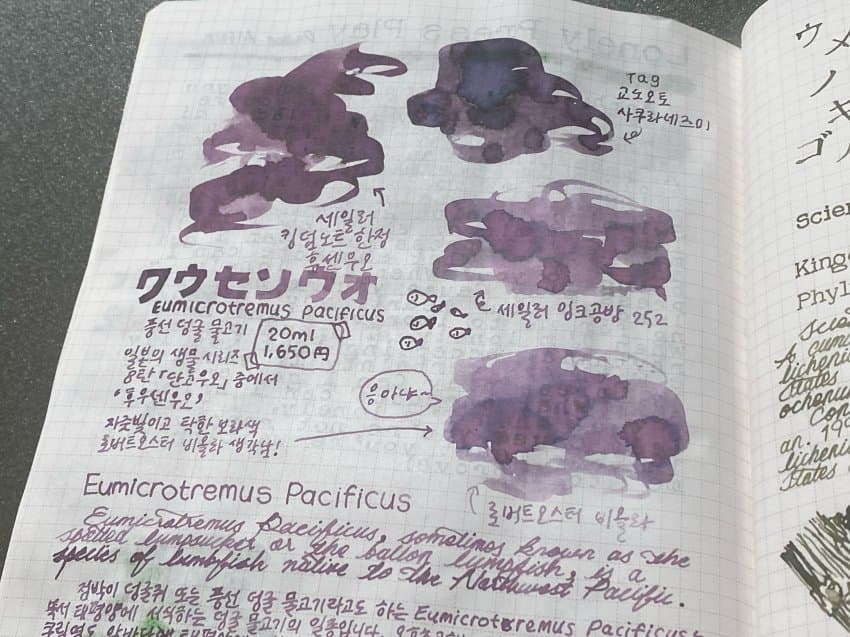 Lonely Press Play
Tag
교노오토
사쿠라네즈미
세일러
킹덤노트 한정
훗센우오
フウセンウオ
Eumicrotremus Pacificus
풍선 덩굴 물고기
20ml
1,650円
일본의 생물 시리즈
8탄 「단고우오」 중에서
'후우센우오'
자줏빛이고 탁한 보라색
로버트오스터 비올라 생각남!
세일러 잉크공방 252
응아냐~
로버트오스터 비올라
Eumicrotremus Pacificus
Eumicrotremus Pacificus, sometimes known as the
spotted lumpsucker or the ballon lumpfish, is a
species of lumpfish native to the Northwest Pacific.
점박이 덩굴쥐 또는 풍선 덩굴 물고기라고도 하는 Eumicrotremus Pacificus는
북서 태평양에 서식하는 덩굴 물고기의 일종입니다.
ウメ
ノキ
ゴ
Scien
King
Phyl